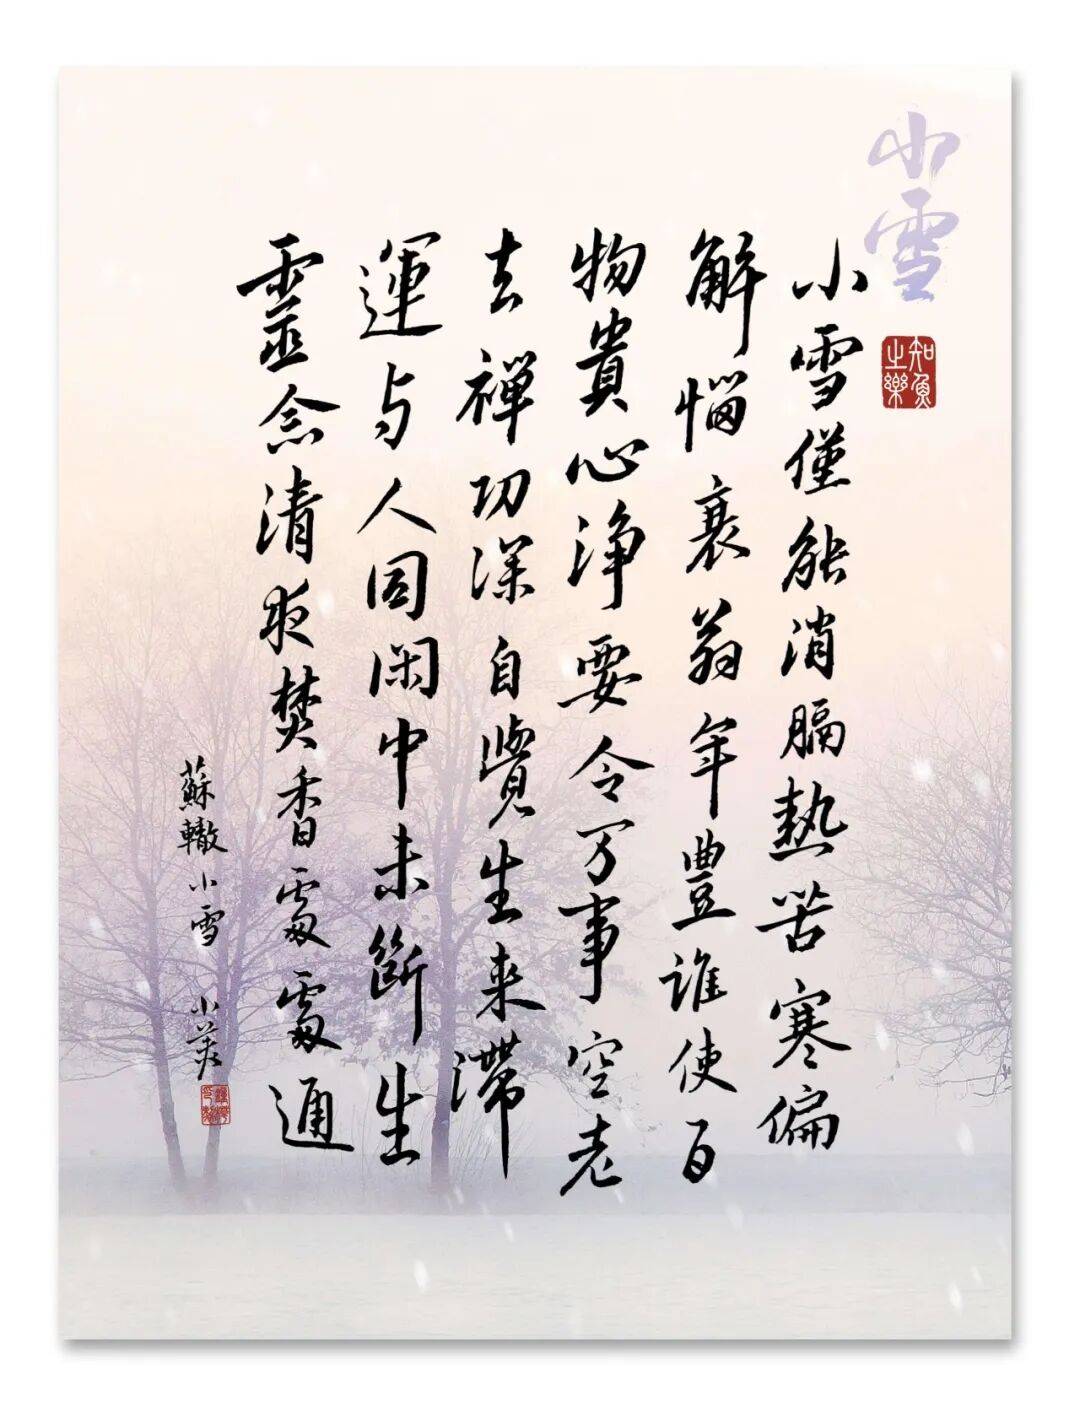 小雪
知魚之樂
小雪僅能消膈熱苦寒偏
解惱衰翁年豐誰使百
物貴心淨要令万事空老
去禪功深自覺生来滯
運与人同閑中未斷生
霊念清夜焚香處處通
蘇轍小雪